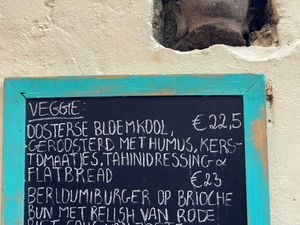 VEGGIE:
OOSTERSE BLOEMKOOL, €22,5
GEROOSTERD MET HUMUS, KERS-
TOMAATJES, TAHINIDRESSING &
FLATBREAD
BERLOUMIBURGER OP BRIOCHE €23
BUN MET RELISH VAN RODE